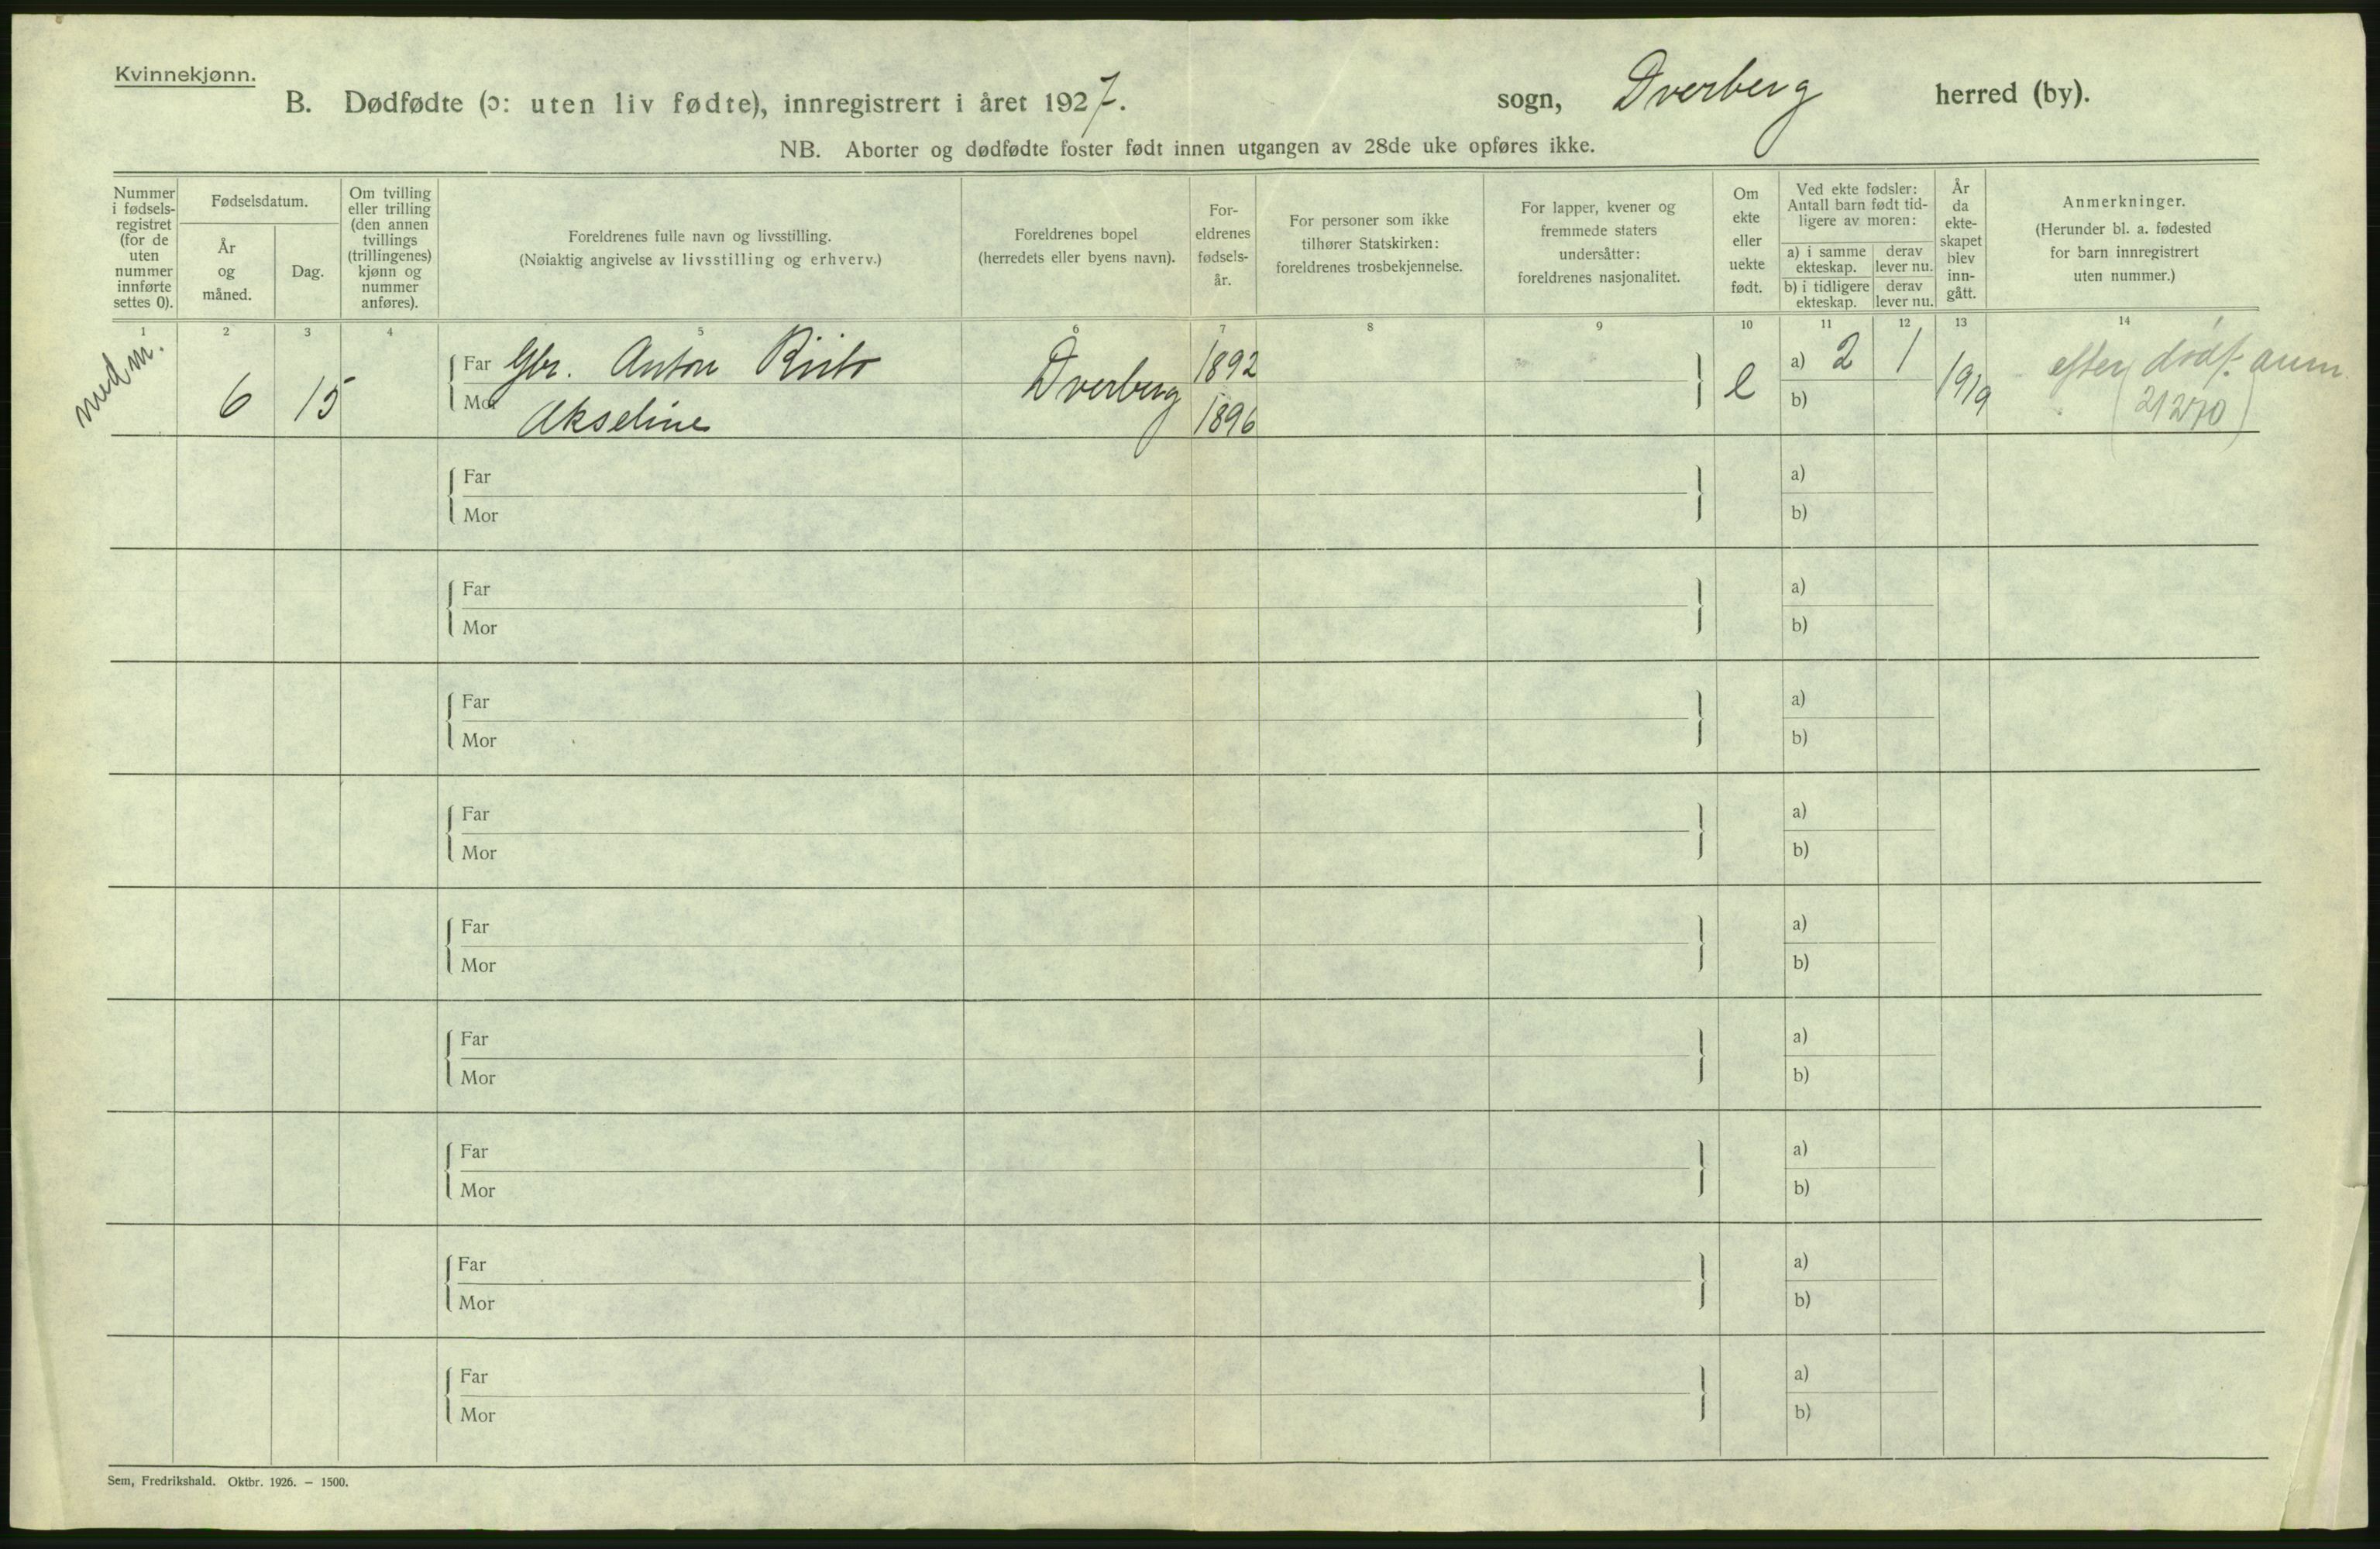 Kvinnekjønn.
B. Dødfødte (ɔ: uten liv fødte), innregistrert i året 1927. sogn, Dverberg herred (by).
NB. Aborter og dødfødte foster født innen utgangen av 28de uke opføres ikke.
Nummer i fødsels-registret (for de uten nummer innførte settes 0).
Fødselsdatum.
År og måned.
Dag.
Om tvilling eller trilling (den annen tvillings (trillingenes) kjønn og nummer anføres).
Foreldrenes fulle navn og livsstilling.
(Nøiaktig angivelse av livsstilling og erhverv.)
Foreldrenes bopel
(herredets eller byens navn).
For-eldrenes fødsels-år.
For personer som ikke tilhører Statskirken: foreldrenes trosbekjennelse.
For lapper, kvener og fremmede staters undersåtter: foreldrenes nasjonalitet.
Om ekte eller uekte født.
Ved ekte fødsler: Antall barn født tid-ligere av moren:
a) i samme ekteskap.
derav lever nu.
b) i tidligere ekteskap.
derav lever nu.
År da ekte-skapet blev inn-gått.
Anmerkninger.
(Herunder bl. a. fødested for barn innregistrert uten nummer.)
1 2 3 4 5 6 7 8 9 10 11 12 13 14
med m. 6 15
Far Gbr. Anton Dverberg 1892 e a) 2 1 1919 efter dødf. anm.
Mor Akseline 1896 b) (21270)
Far a)
Mor b)
Far a)
Mor b)
Far a)
Mor b)
Far a)
Mor b)
Far a)
Mor b)
Far a)
Mor b)
Far a)
Mor b)
Far a)
Mor b)
Far a)
Mor b)
Sem, Fredrikshald. Oktbr. 1926. – 1500.